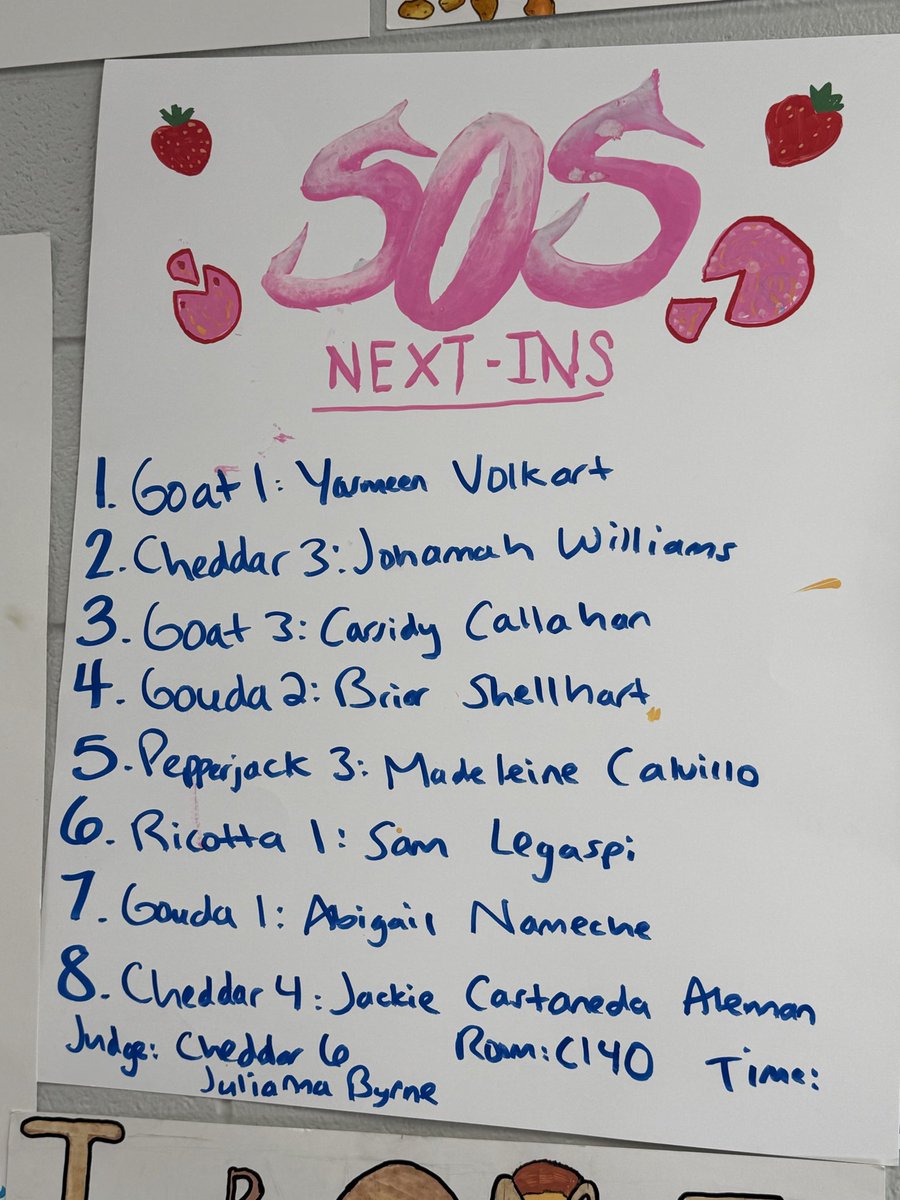 SOS
NEXT-INS
1. Goat 1: Yasmeen Volkart
2. Cheddar 3: Johamah Williams
3. Goat 3: Cassidy Callahan
4. Gouda 2: Briar Shellhart
5. Pepperjack 3: Madeleine Calvillo
6. Ricotta 1: Sam Legaspi
7. Gouda 1: Abigail Nameche
8. Cheddar 4: Jackie Castaneda Aleman
Judge: Cheddar 6 Room: C140 Time:
Julianna Byrne